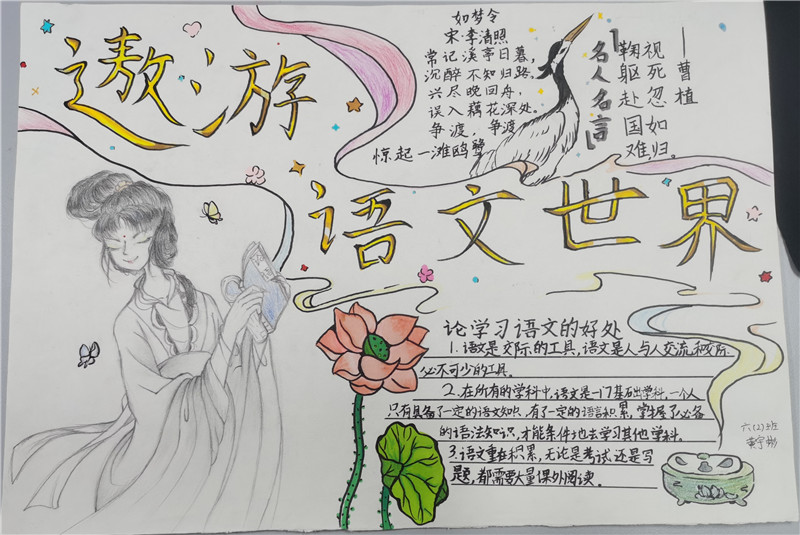 遨游
语文世界
如梦令
宋·李清照
常记溪亭日暮,
沉醉不知归路,
兴尽晚回舟,
误入藕花深处。
争渡,争渡
惊起一滩鸥鹭
【名人名言】
鞠躬赴国难,
视死忽如归。
——曹植
论学习语文的好处
1.语文是交际的工具,语文是人与人交流和交际
必不可少的工具。
2.在所有的学科中,语文是一门基础学科,一个人
只有具备了一定的语文知识,有了一定的语言积累,学生屋了必备
的语法知识,才能条件地去学习其他学科。
3.语文重在积累,无论是考试还是写
题,都需要大量课外阅读。
六(2)班